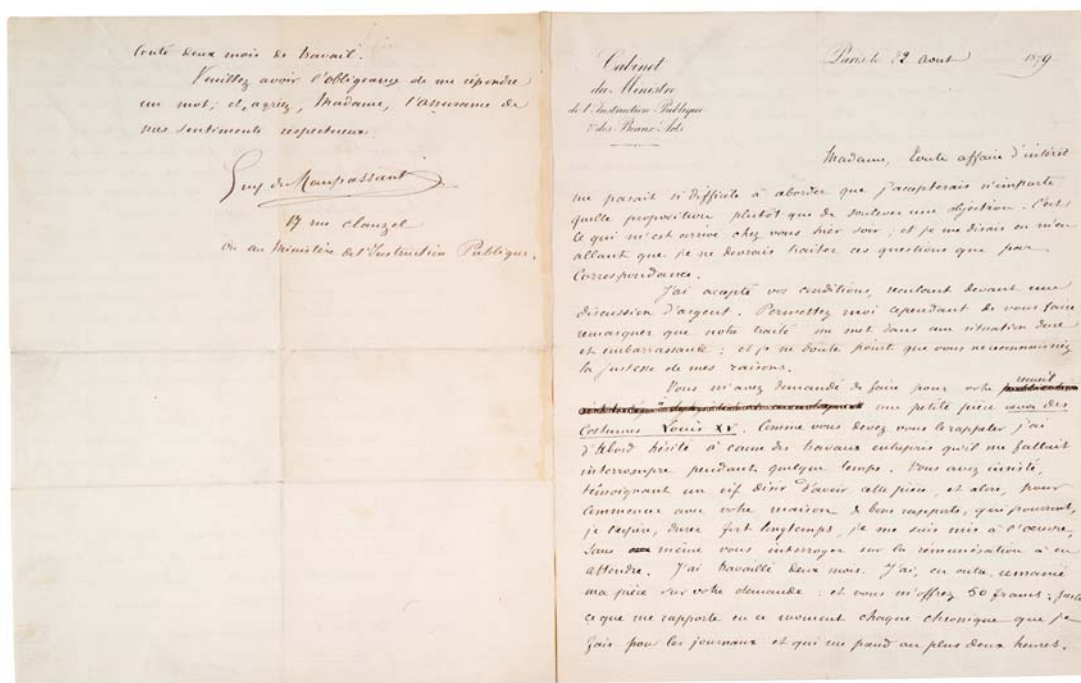 couté deux mois de travail.
Veuillez avoir l'obligeance de me répondre
un mot; et, agréez, Madame, l'assurance de
mes sentiments respectueux.
Guy de Maupassant
17 rue Clauzel
Ou au Ministère de l'Instruction Publique.
Cabinet
du Ministre
de l'Instruction Publique
& des Beaux-Arts
Paris le 22 aout 1879
Madame, Toute affaire d'intérêt
me parait si difficile à aborder que j'accepterais n'importe
quelle proposition plutôt que de soulever une objection. C'est
ce qui m'est arrivé chez vous hier soir; et je me disais en m'en
allant que je ne devrais traiter ces questions que par
Correspondance.
J'ai accepté vos conditions, reculant devant une
discussion d'argent. Permettez moi cependant de vous faire
remarquer que notre traité me met dans une situation dure
et embarrassante; et je ne doute point que vous ne reconnaissiez
la justesse de mes raisons.
Vous m'avez demandé de faire pour votre recueil
une petite pièce avec des
Costumes Louis XV. Comme vous devez vous le rappeler j'ai
d'abord hésité à cause des travaux entrepris qu'il me fallait
interrompre pendant quelque temps. Vous avez insisté,
témoignant un vif désir d'avoir cette pièce, et alors, pour
commencer avec votre maison de bons rapports, qui pourront,
je l'espère, durer fort longtemps, je me suis mis à l'œuvre,
sans même vous interroger sur la rémunération à en
attendre. J'ai travaillé deux mois. J'ai, en outre, remanié
ma pièce sur votre demande; et vous m'offrez 50 francs: juste
ce que me rapporte en ce moment chaque chronique que je
fais pour les journaux et qui me prend au plus deux heures.